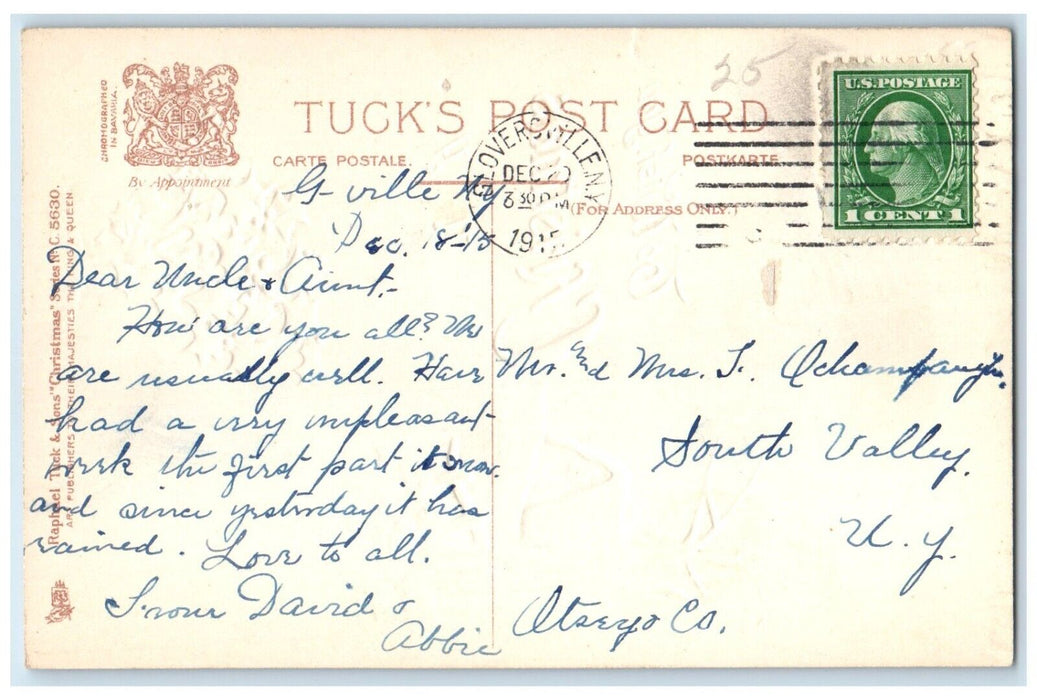 CHROMOGRAPHED
IN BAVARIA.
By Appointment
TUCK'S POST CARD
CARTE POSTALE.
POSTKARTE
(FOR ADDRESS ONLY.)
25
GLOVERSVILLE, N.Y.
DEC
3 30 PM
1915
U.S. POSTAGE
1 CENT 1
Raphael Tuck & Sons' "Christmas" Series No. C. 5630.
ART PUBLISHERS TO THEIR MAJESTIES THE KING & QUEEN.
G-ville Ny
Dec. 18-15
Dear Uncle & Aunt,-
How are you all? We
are usually well. Have
had a very unpleasant
week the first part it snow.
and since yesterday it has
rained. Love to all.
From David &
Abbie
Mr. and Mrs. J. Ochampaugh.
South Valley.
N. Y.
Otsego Co.